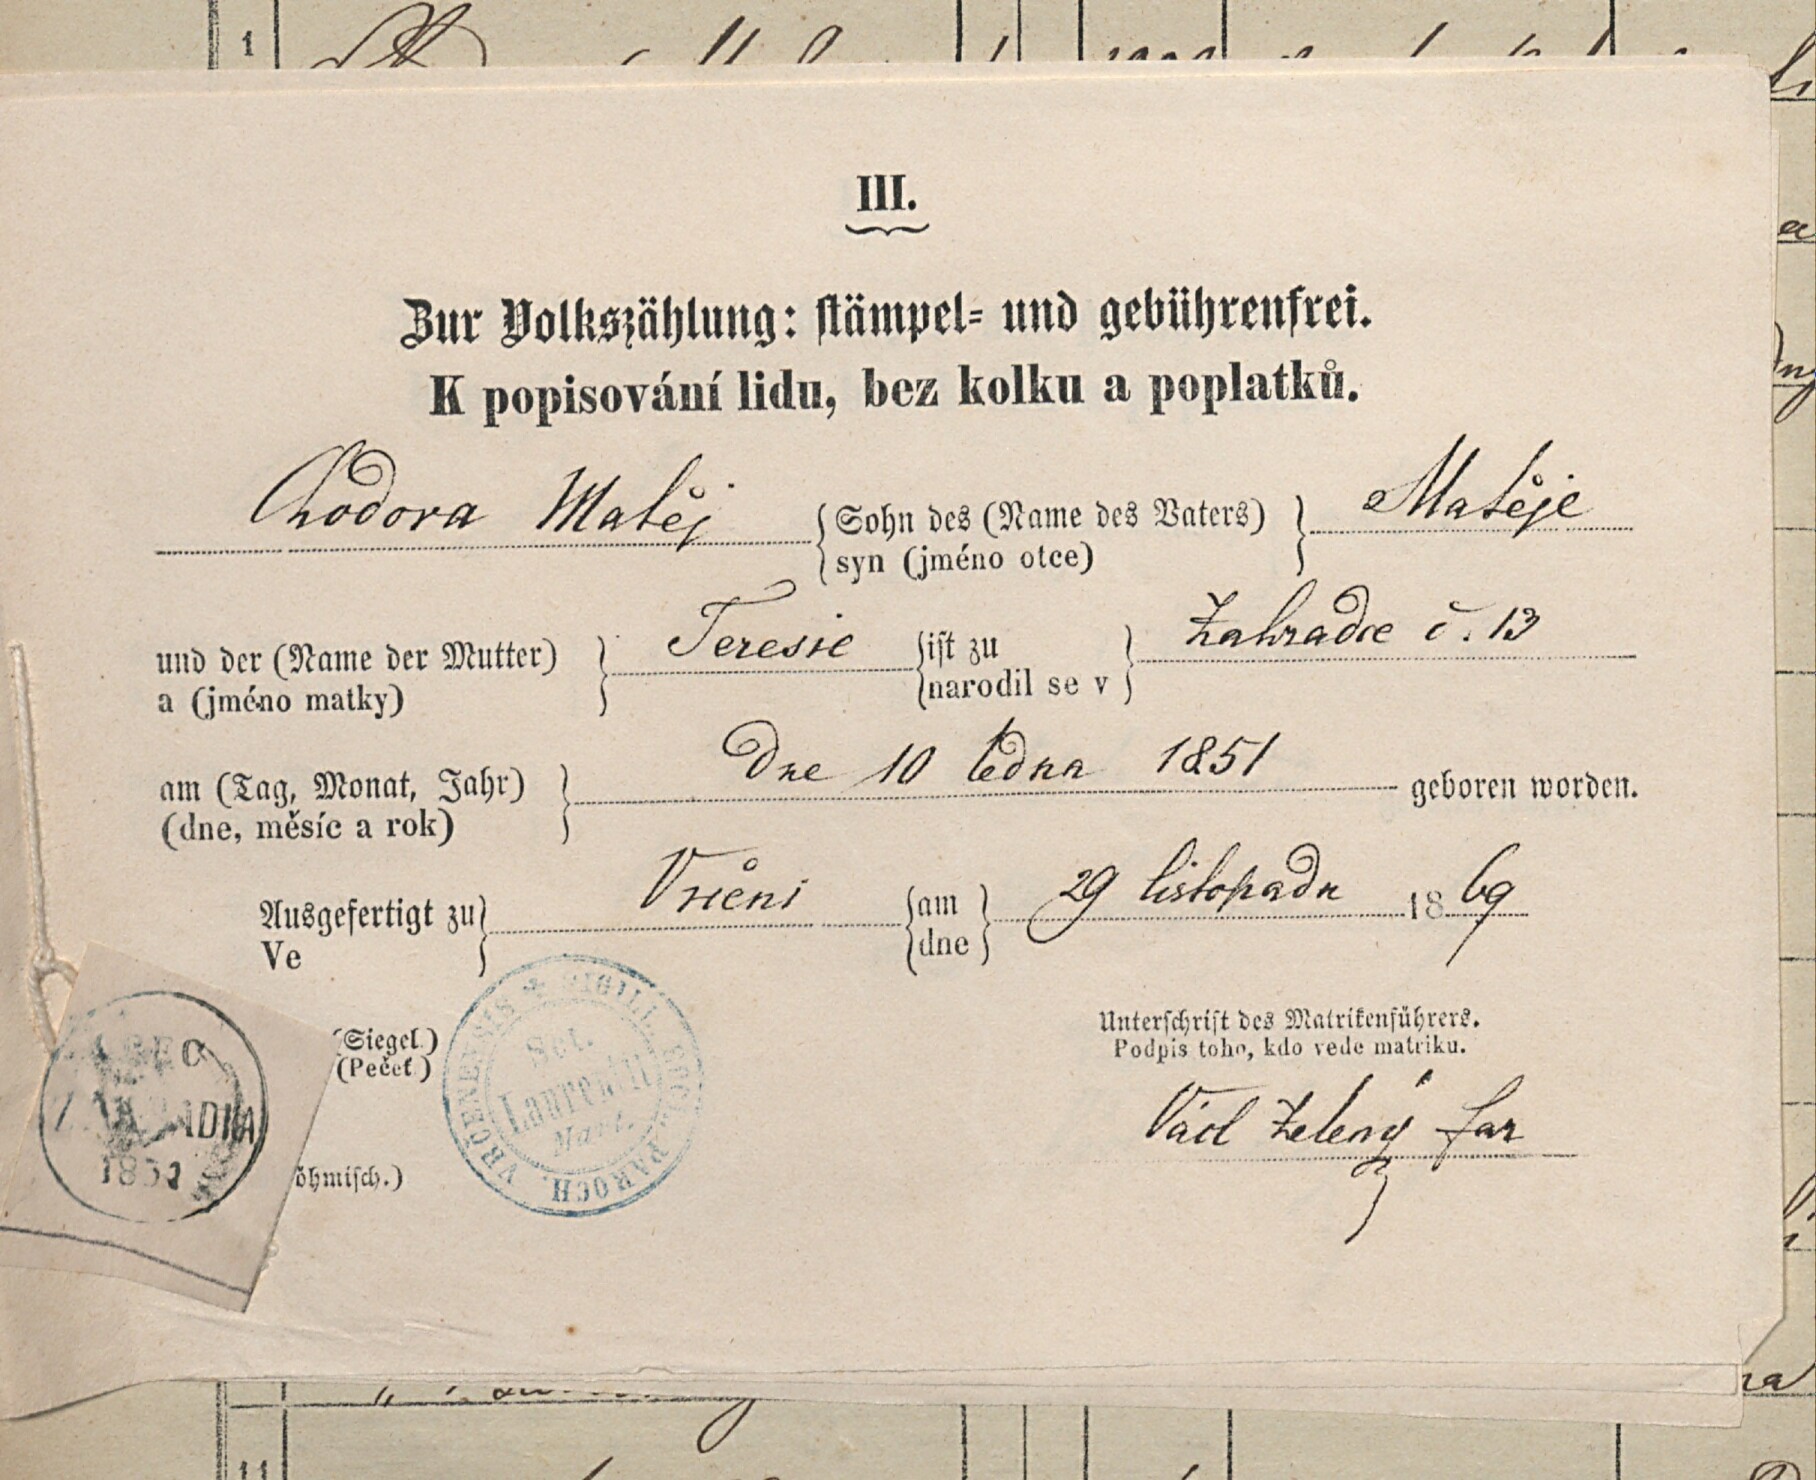 1
III.
Zur Volkszählung: stämpel- und gebührenfrei.
K popisování lidu, bez kolku a poplatků.
Chodora Matěj { Sohn des (Name des Vaters) } Matěje
syn (jméno otce)
und der (Name der Mutter) } Teresie { ist zu } Zahradce č. 13
a (jméno matky) narodil se v
am (Tag, Monat, Jahr) } dne 10 ledna 1851 geboren worden.
(dne, měsíc a rok)
Ausgefertigt zu } Vrčeni { am } 29 listopadu 1869
Ve dne
(Siegel.)
(Pečeť.)
Unterschrift des Matrikenführers.
Podpis toho, kdo vede matriku.
Václ Zelený far
öhmisch.)
SIGILL. ECCL. PAROCH. VRČENENSIS
Sct.
Laurentii
Mart.
OBEC
ZAHRADKA
11